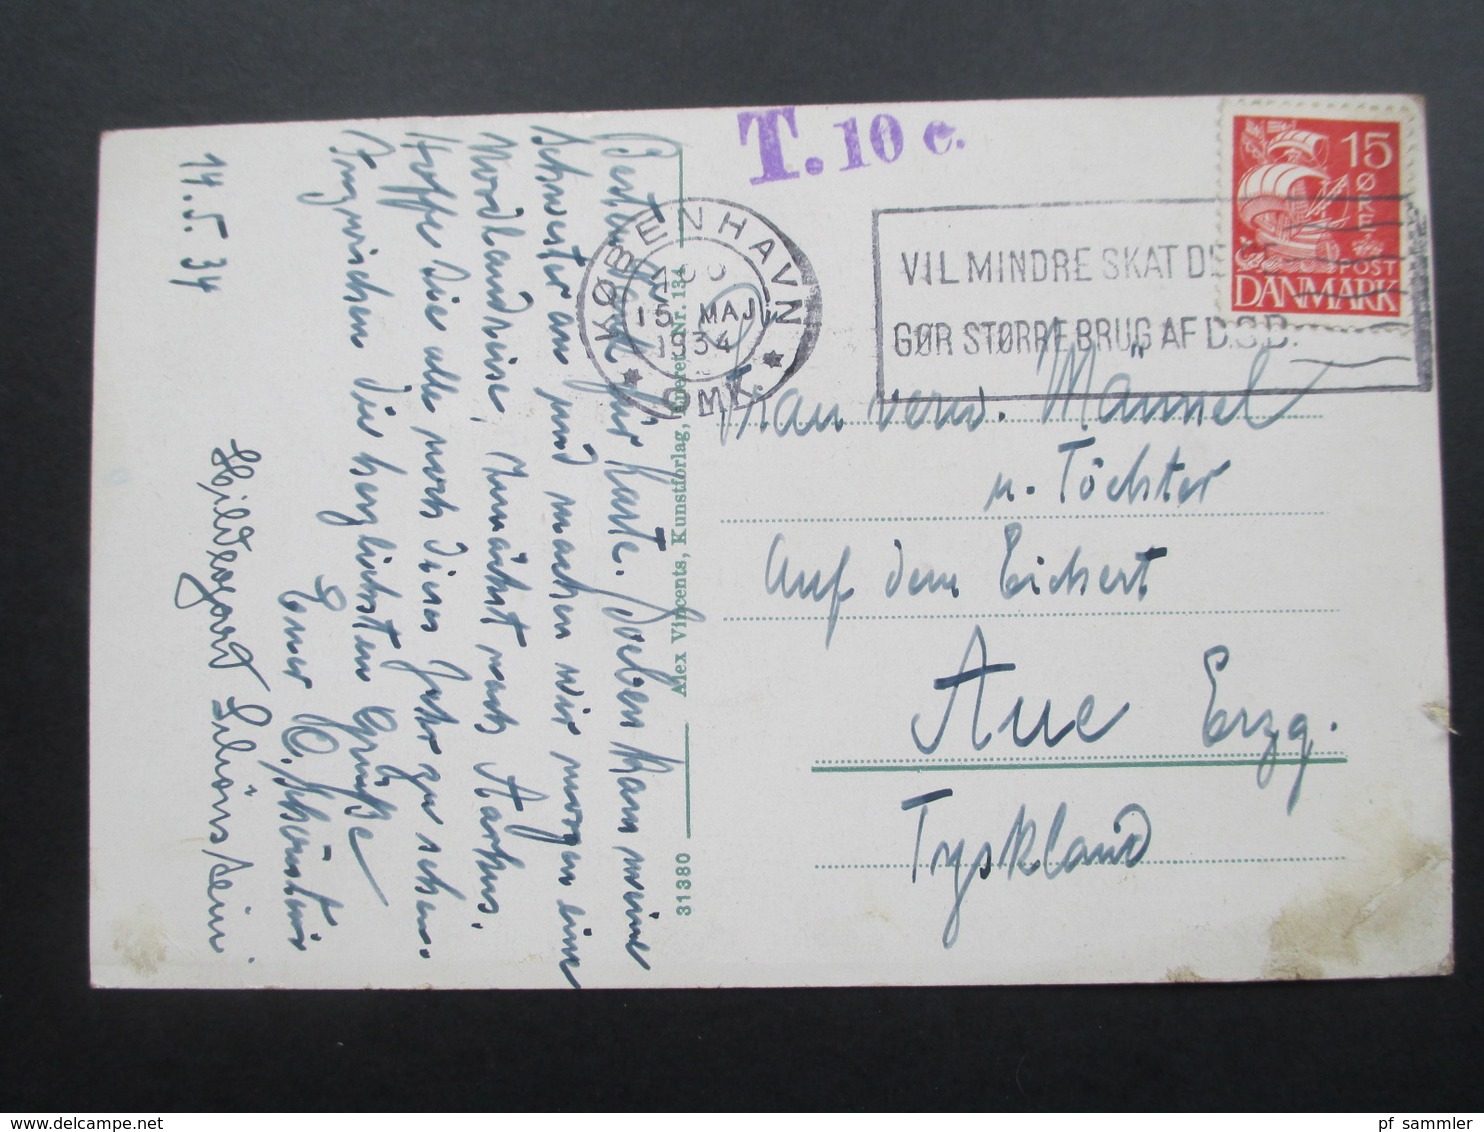 14. 5. 34
Besten Dank für Karte. Soeben kam meine
Schwester an und machen wir morgen eine
Nordlandreise, zunächst nach Aarhus.
Hoffe Sie alle noch dieses Jahr zu sehen.
Inzwischen die herzlichsten Grüße
Ihr
Hildegard
Alex Vincents, Kunstforlag, Eneret Nr. 134
31380
T. 10 c.
KØBENHAVN
15 MAJ
1934
OMK.
VIL MINDRE SKAT DE
GØR STØRRE BRUG AF D.S.B.
15
ØRE
POST
DANMARK
Frau verw. Männel
u. Töchter
Auf dem Eichert
Aue Erzg.
Tyskland
pf_sammler